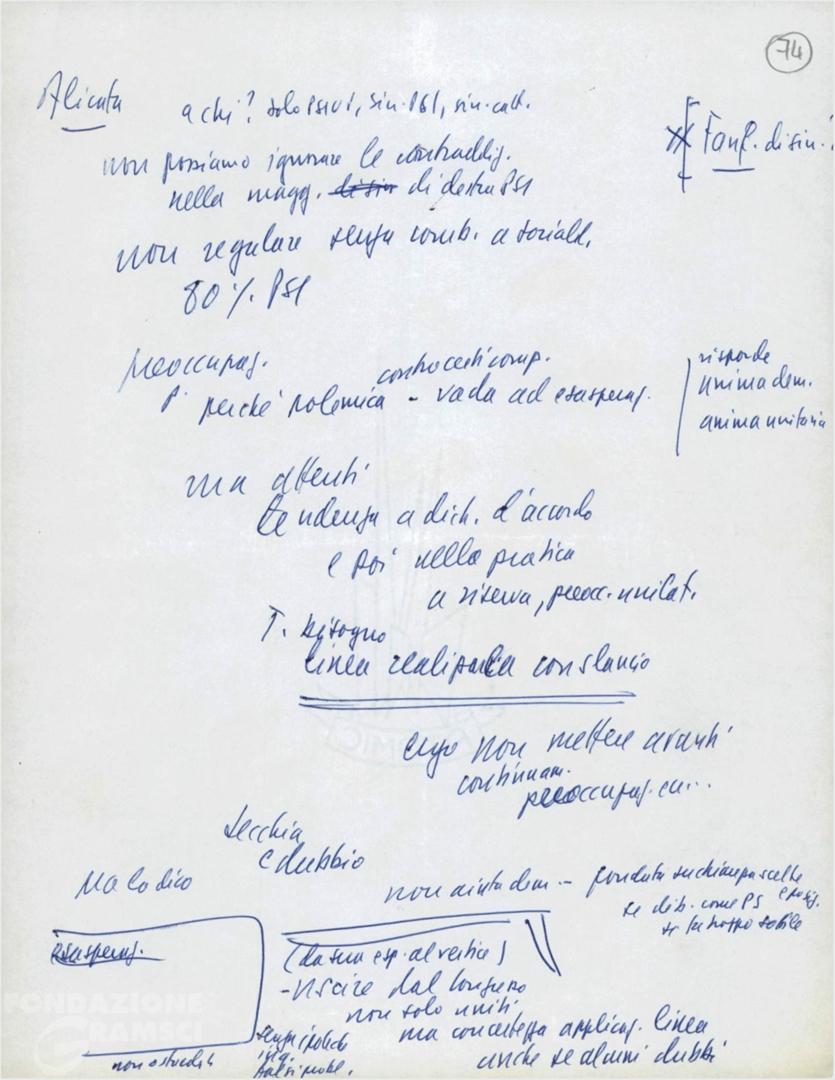 74
Alicata a chi? solo PSIUP, sin. PSI, sin. catt.
Fanf. di sin.
non possiamo ignorare le contraddiz.
nella magg. di sin di destra PSI
non regalare senza comb. a sociald.
80% PSI
preoccupaz. contro certi comp.
perché polemica - vada ad esasperaz.
risponde
anima dem.
anima unitaria
ma attenti
tendenza a dich. d'accordo
e poi nella pratica
a riserva, preocc. unilat.
T. bisogno
linea realizzarla con slancio
ergo non mettere avanti
continuam.
preoccupaz. ecc...
Secchia
e dubbio
Ma lo dico
non aiuta dem - fondata su chiare scelte
se dib. come PS
se fa troppo sottile
esasperaz.
(da sua esp. al vertice)
- uscire dal Congresso
non solo uniti
ma con certezza applicaz. linea
anche se alcuni dubbi
senza
FONDAZIONE
GRAMSCI